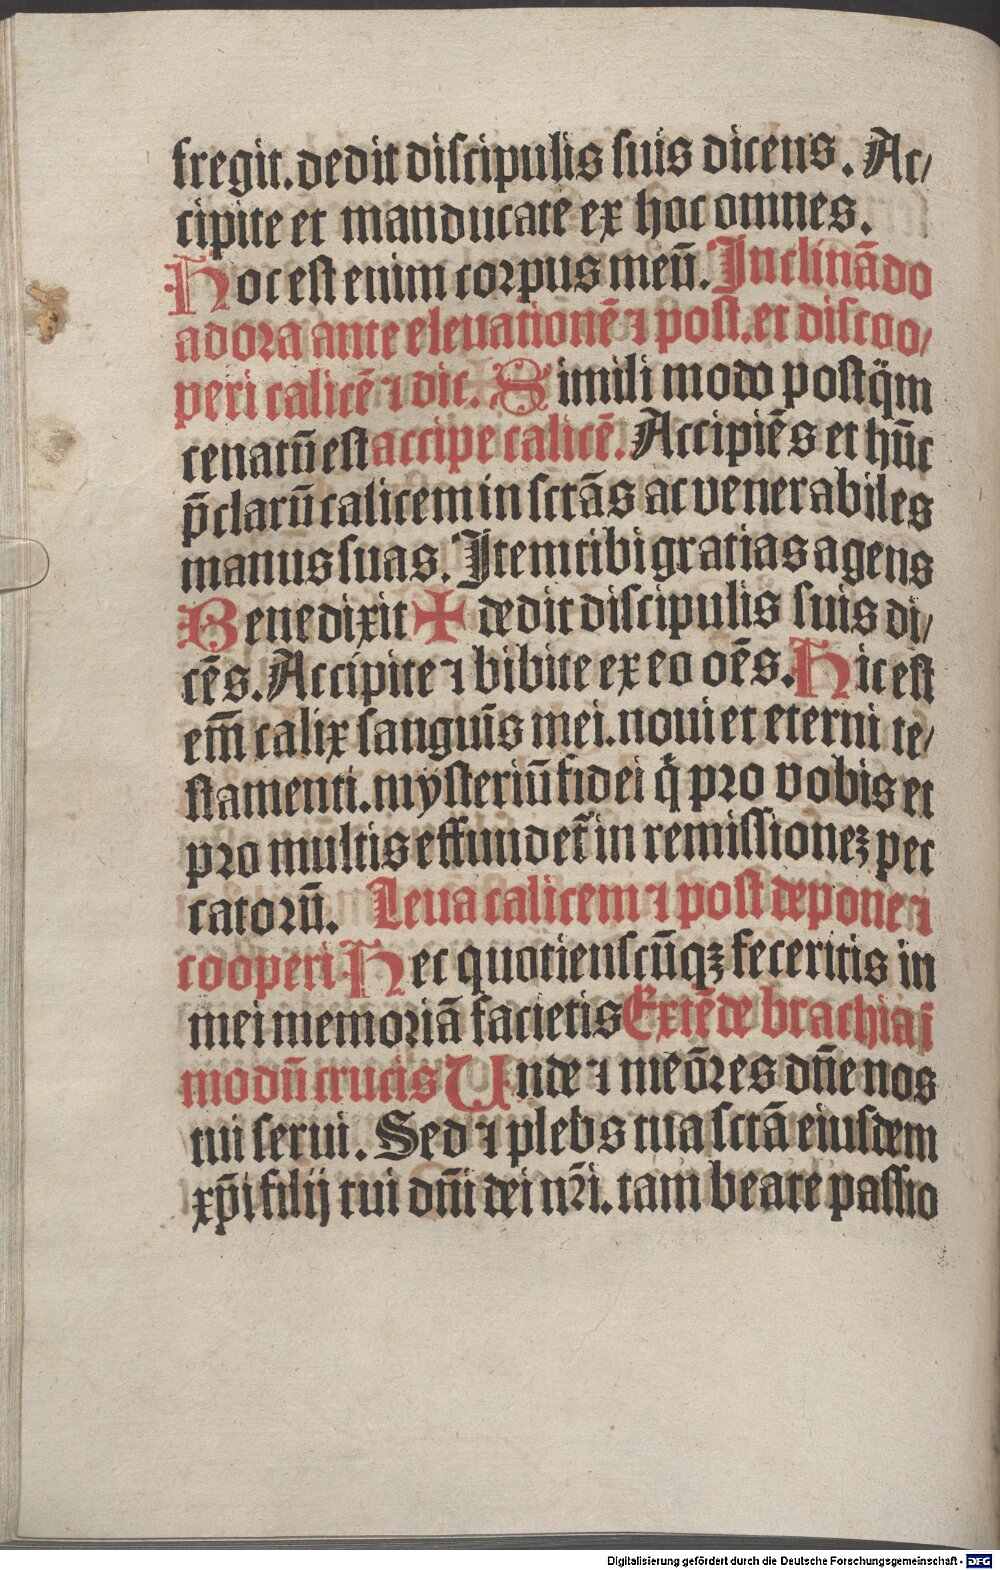 fregit. dedit discipulis suis dicens. Ac/
cipite et manducate ex hoc omnes.
Hoc est enim corpus meū. Inclinādo
adora ante eleuationē ⁊ post. et discoo/
peri calicē ⁊ dic. Simili modo postq̄m
cenatū est accipe calicē. Accipiēs et hūc
p̄clarū calicem in sctās ac venerabiles
manus suas. Item tibi gratias agens
Benedixit ✠ dedit discipulis suis di/
cēs. Accipite ⁊ bibite ex eo oēs. Hic est
em̄ calix sanguīs mei. noui et eterni te/
stamenti. mysteriū fidei q̇ pro vobis et
pro multis effundet᷑ in remissioneꝫ pec
catorū. Leua calicem ⁊ post depone ⁊
cooperi Hec quotienscūqꝫ feceritis in
mei memoriā facietis Extēde brachia ī
modū crucis Unde ⁊ meōres dn̄e nos
tui serui. Sed ⁊ plebs tua sctā eiusdem
xp̄i filij tui dn̄i dei nr̄i. tam beate passio
Digitalisierung gefördert durch die Deutsche Forschungsgemeinschaft - DFG